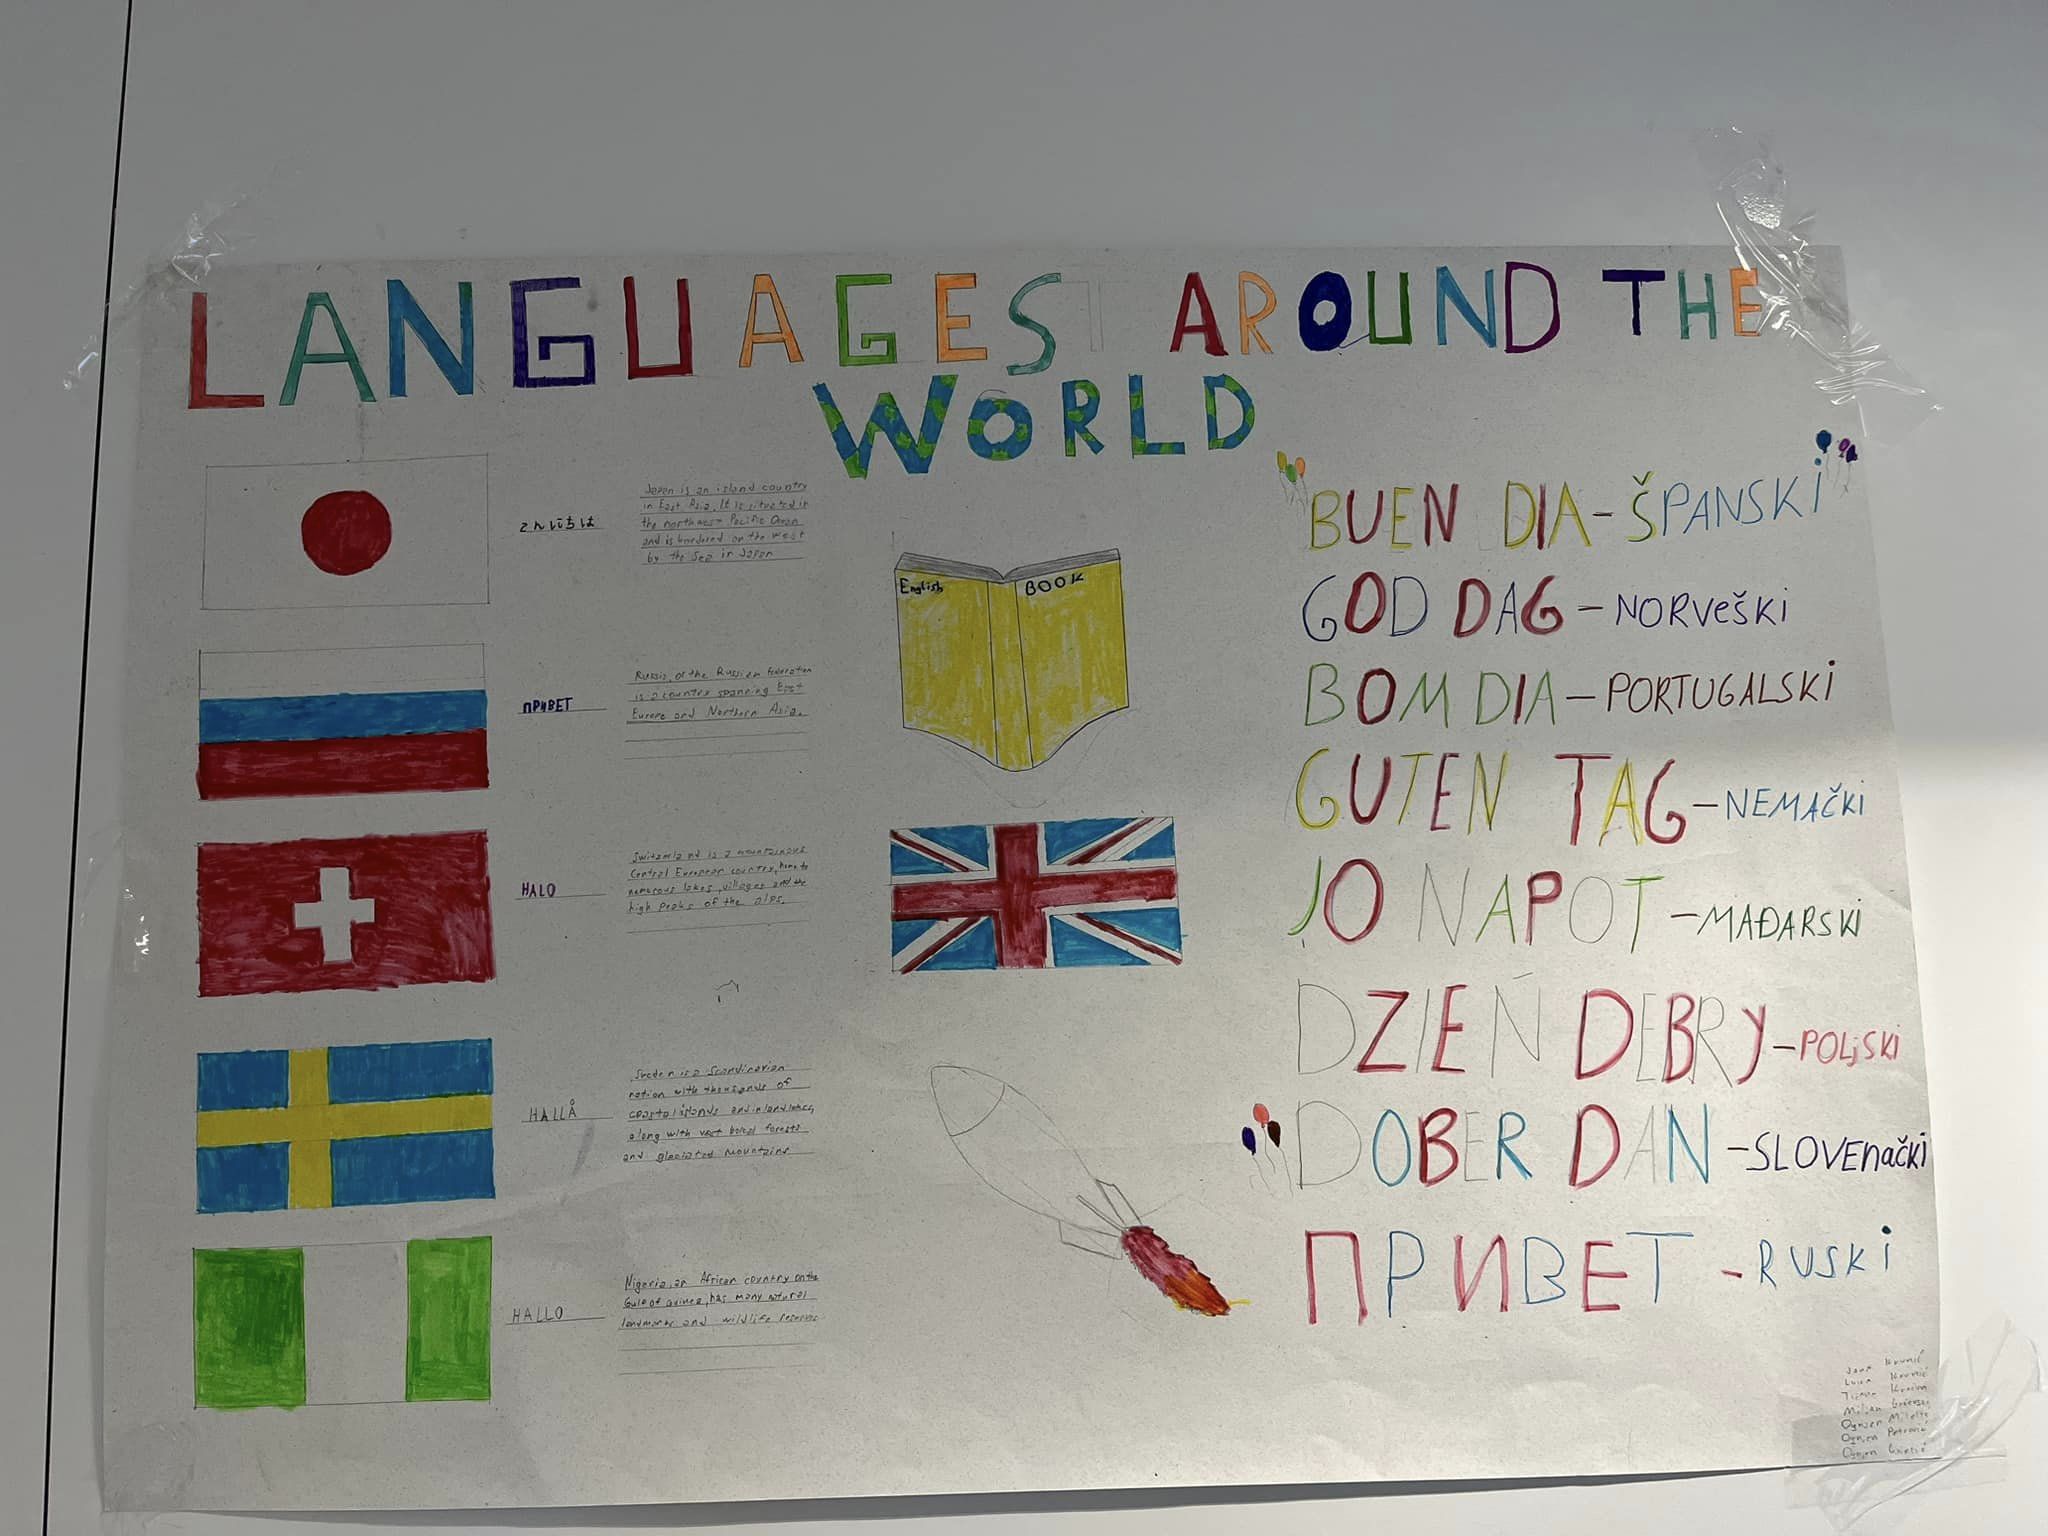 LANGUAGES AROUND THE
WORLD
こんにちは
Japan is an island country
in East Asia. It is situated in
the northwest Pacific Ocean
and is bordered on the west
by the Sea in Japan
ПРИВЕТ
Russia, or the Russian Federation
is a country spanning East
Europe and Northern Asia.
HALO
Switzerland is a mountainous
Central European country, home to
numerous lakes, villages and the
high peaks of the alps.
HALLÅ
Sweden is a Scandinavian
nation with thousands of
coastal islands and inland lakes,
along with vast boreal forests
and glaciated mountains
HALLO
Nigeria, an African country on the
Gulf of Guinea, has many natural
landmarks and wildlife reserves
English BOOK
BUEN DIA - ŠPANSKI
GOD DAG - NORVEŠKI
BOM DIA - PORTUGALSKI
GUTEN TAG - NEMAČKI
JO NAPOT - MAĐARSKI
DZIEŃ DEBRY - POLjSKI
DOBER DAN - SLOVENAČKI
ПРИВЕТ - RUSKI
Ognjen Petrović